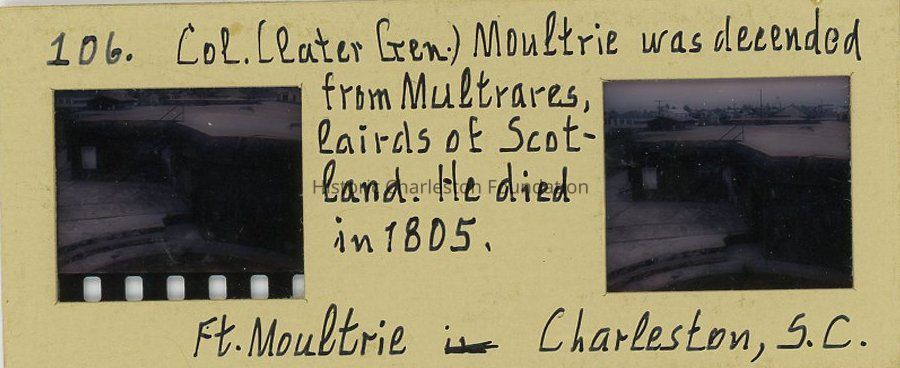 106. Col. (later Gen.) Moultrie was decended
from Multrares,
lairds of Scot-
land. He died
Historic Charleston Foundation
in 1805.
Ft. Moultrie in Charleston, S.C.